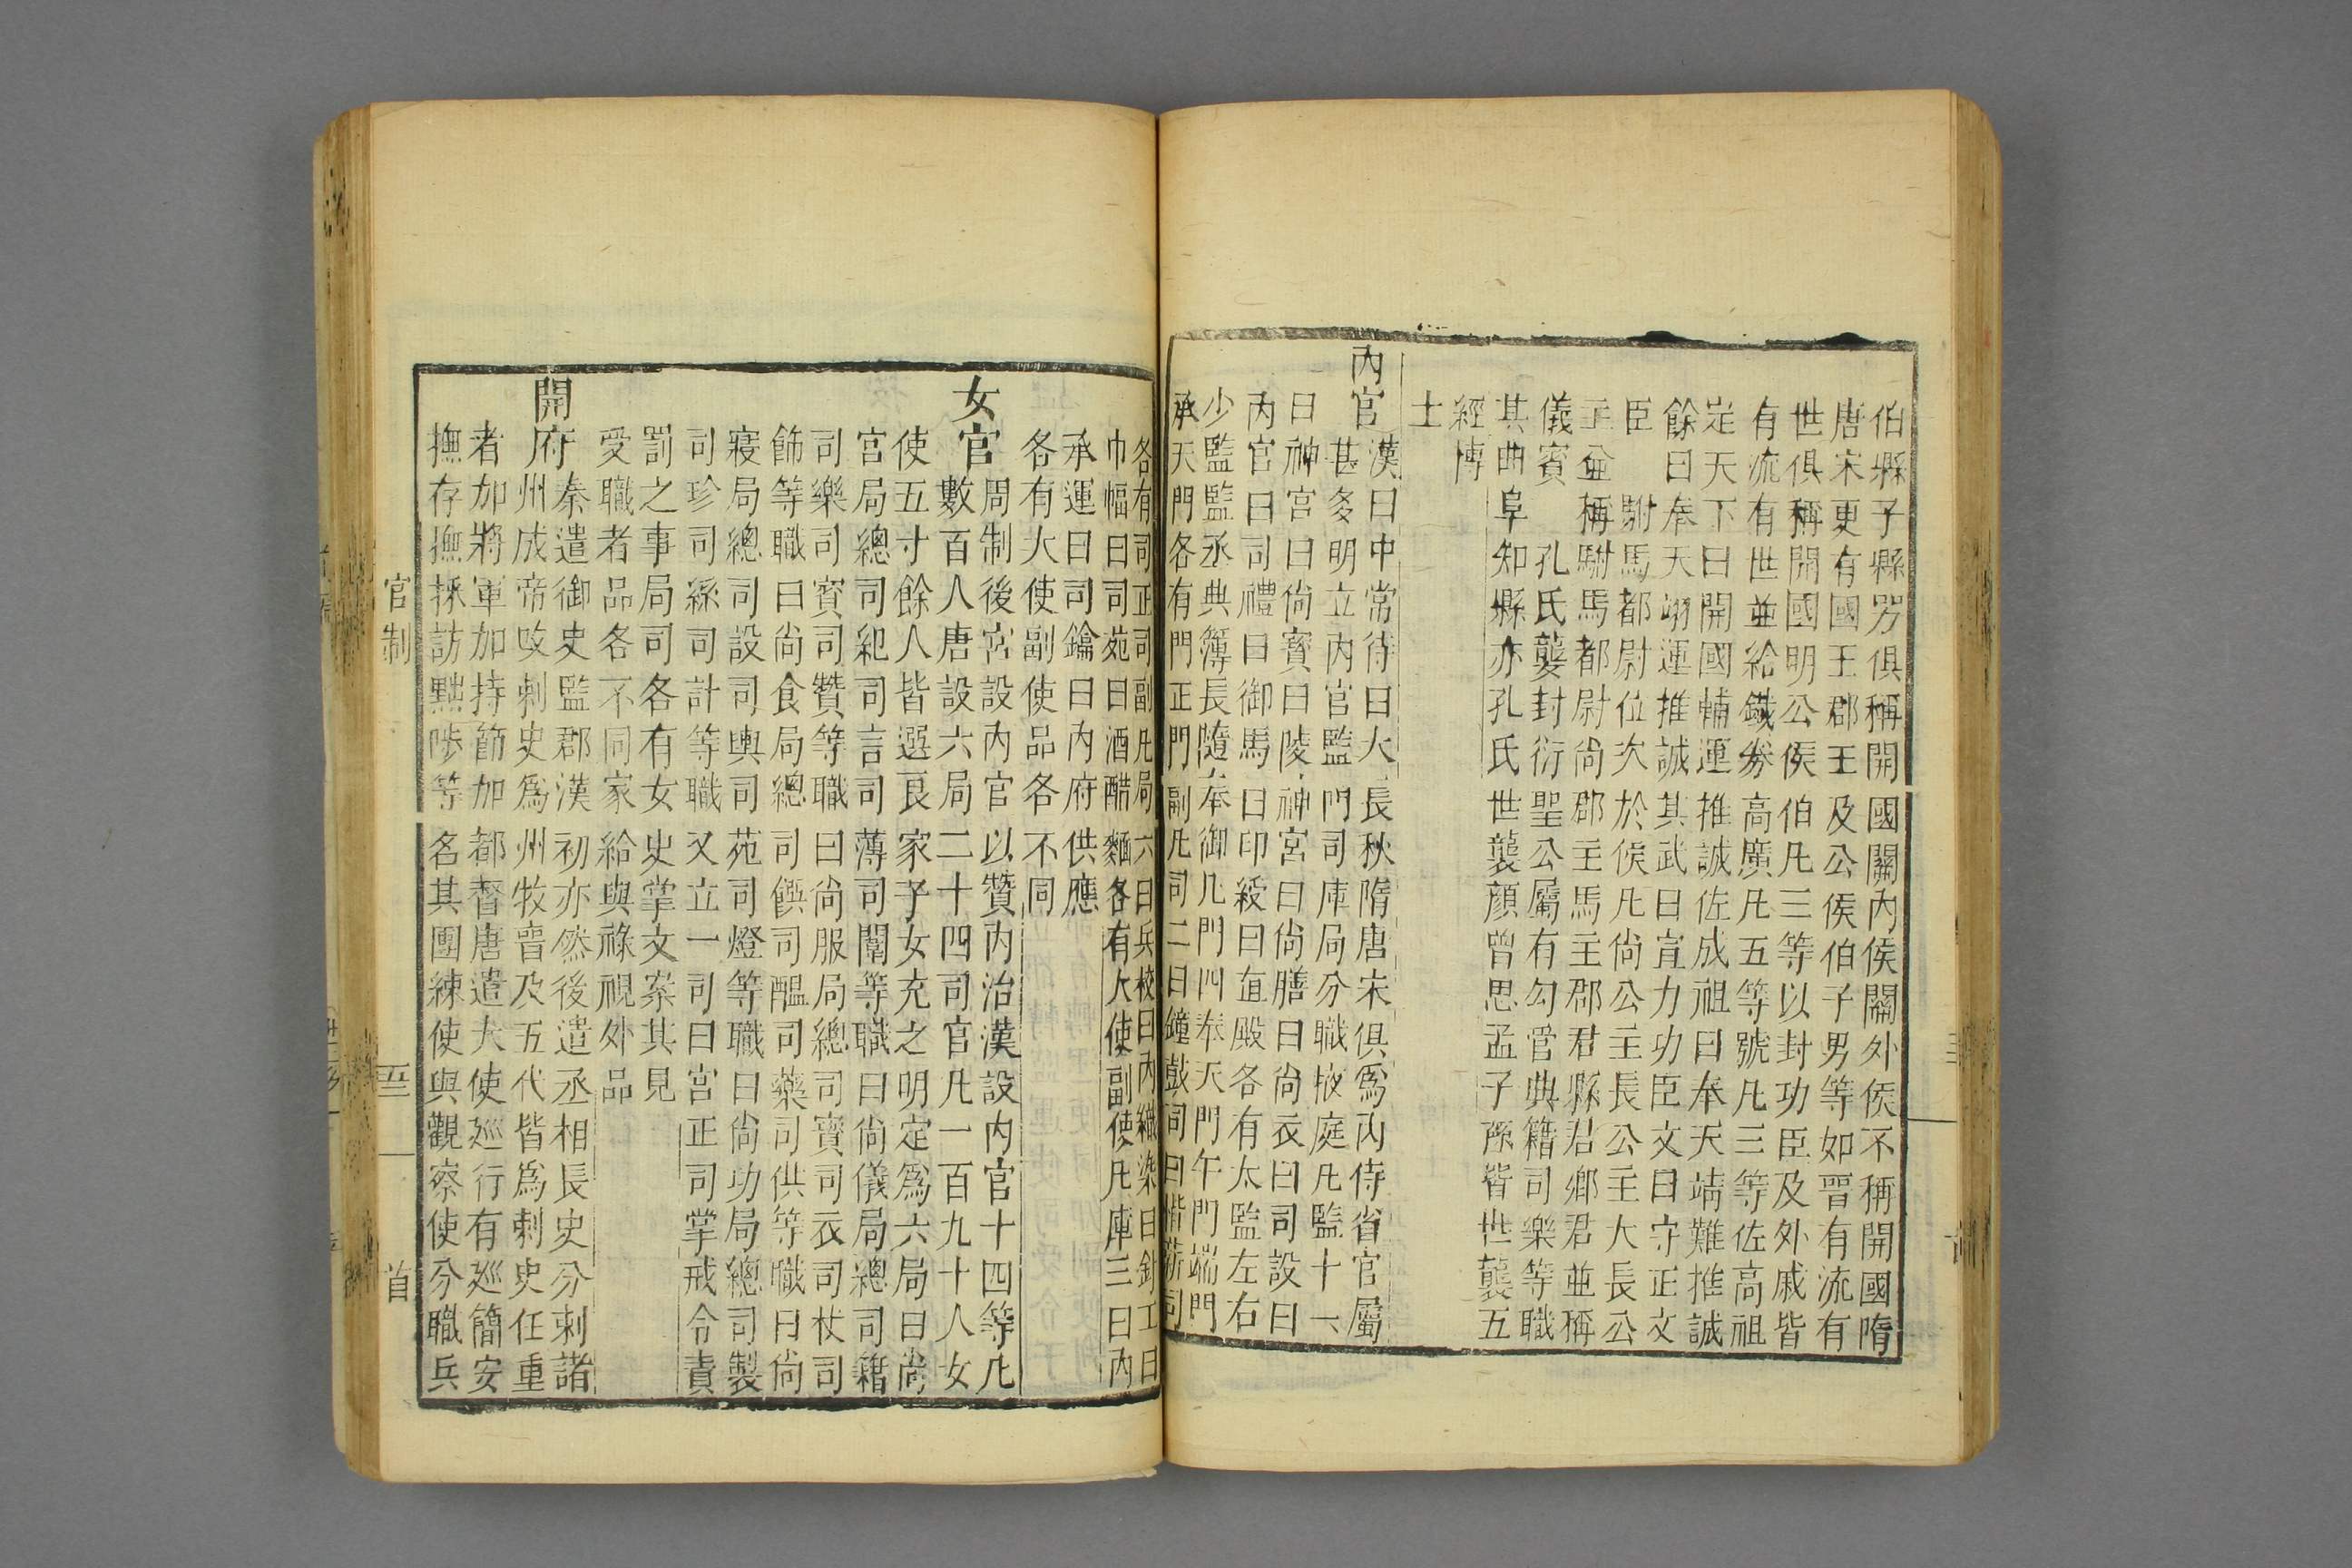 伯縣子縣男俱稱開國關內侯關外侯不稱開國隋
唐宋更有國王郡王及公侯伯子男等如晉有流有
世俱稱開國明公侯伯凡三等以封功臣及外戚皆
有流有世並給鐵券高廣凡五等號凡三等佐高祖
定天下曰開國輔運推誠佐成祖曰奉天靖難推誠
餘曰奉天翊運推誠其武曰宣力功臣文曰守正文
臣　駙馬都尉位次於侯凡尚公主長公主大長公
主並稱駙馬都尉尚郡主馬主郡君縣君鄉君並稱
儀賓　孔氏襲封衍聖公屬有勾管典籍司樂等職
其曲阜知縣亦孔氏世襲顏曾思孟子孫皆世襲五
經博
士
內官漢曰中常侍曰大長秋隋唐宋俱爲內侍省官屬
甚多明立內官監門司庫局分職掖庭凡監十一
曰神宮曰尙寶曰陵神宮曰尙膳曰尙衣曰司設曰
內官曰司禮曰御馬曰印綬曰直殿各有太監左右
少監監丞典簿長隨奉御凡門四奉天門午門端門
承天門各有門正門副凡司二曰鐘鼓司曰惜薪司
各有司正司副凡局六曰兵校曰內織染曰針工曰
巾帽曰司苑曰酒醋麵各有大使副使凡庫三曰內
承運曰司鑰曰內府供應
各有大使副使品各不同
女官周制後宮設內官以贊內治漢設內官十四等凡
數百人唐設六局二十四司官凡一百九十人女
使五寸餘人皆選良家子女充之明定爲六局曰尙
宮局總司紀司言司薄司闈等職曰尙儀局總司籍
司樂司賓司贊等職曰尙服局總司寶司衣司杖司
飾等職曰尙食局總司饌司醞司藥司供等職曰尙
寢局總司設司輿司苑司燈等職曰尙功局總司製
司珍司綵司計等職又立一司曰宮正司掌戒令責
罰之事局司各有女史掌文案其見
受職者品各不同家給與祿視外品
開府秦遣御史監郡漢初亦然後遣丞相長史分刺諸
州成帝改刺史爲州牧晉及五代皆爲刺史任重
者加將軍加持節加都督唐遣大使巡行有巡簡安
撫存撫採訪黜陟等名其團練使與觀察使分職兵
官制
五三
首